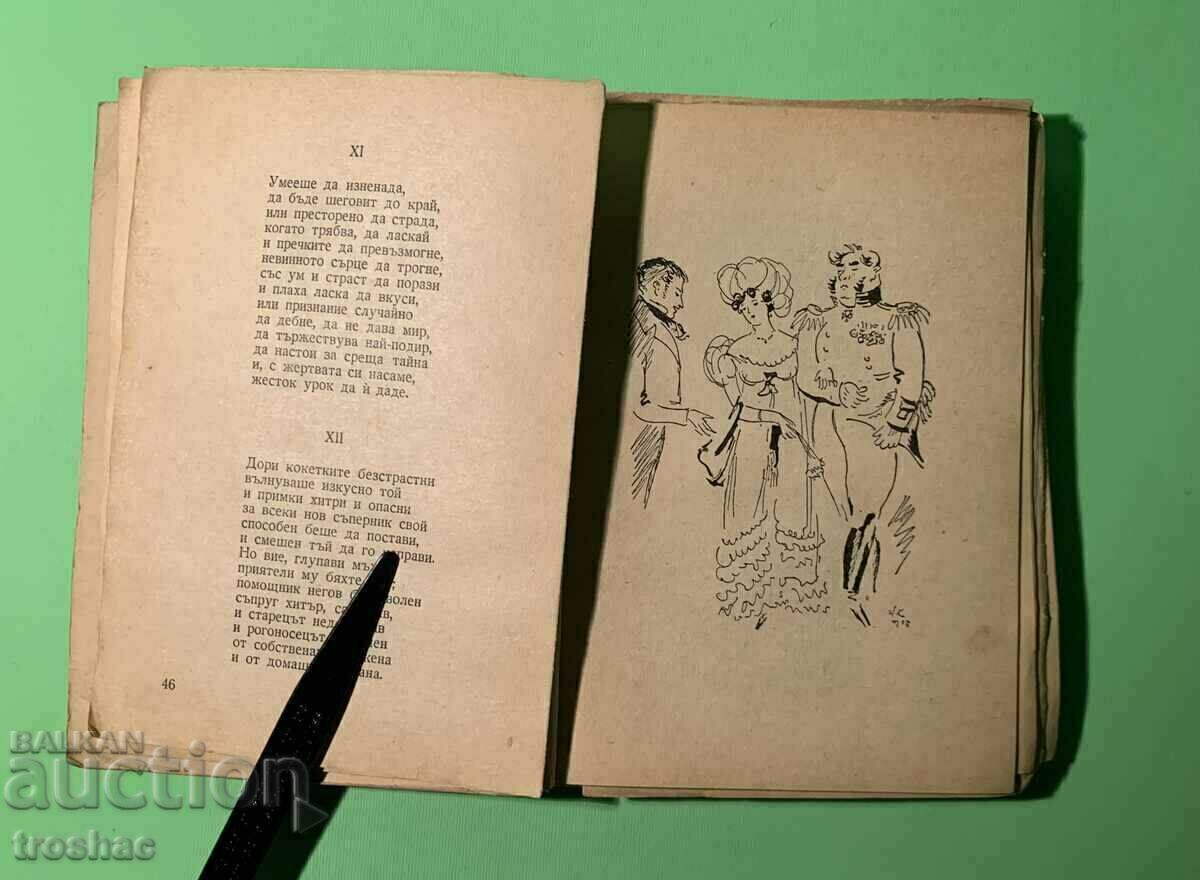 XI
Умееше да изненада,
да бъде шеговит до край,
или престорено да страда,
когато трябва, да ласкай
и пречките да превъзмогне,
невинното сърце да трогне,
със ум и страст да порази
и плаха ласка да вкуси,
или признание случайно
да дебне, да не дава мир,
да тържествува най-подир,
да настои за среща тайна
и, с жертвата си насаме,
жесток урок да ѝ даде.
XII
Дори кокетките безстрастни
вълнуваше изкусно той
и примки хитри и опасни
за всеки нов съперник свой
способен беше да постави,
и смешен тъй да го
Но вие, глупави
приятели му бяхте
помощник негов
съпруг хитър,
и старецът
и рогоносецът
от собствена
и от
46
BALKAN
auction
troshac